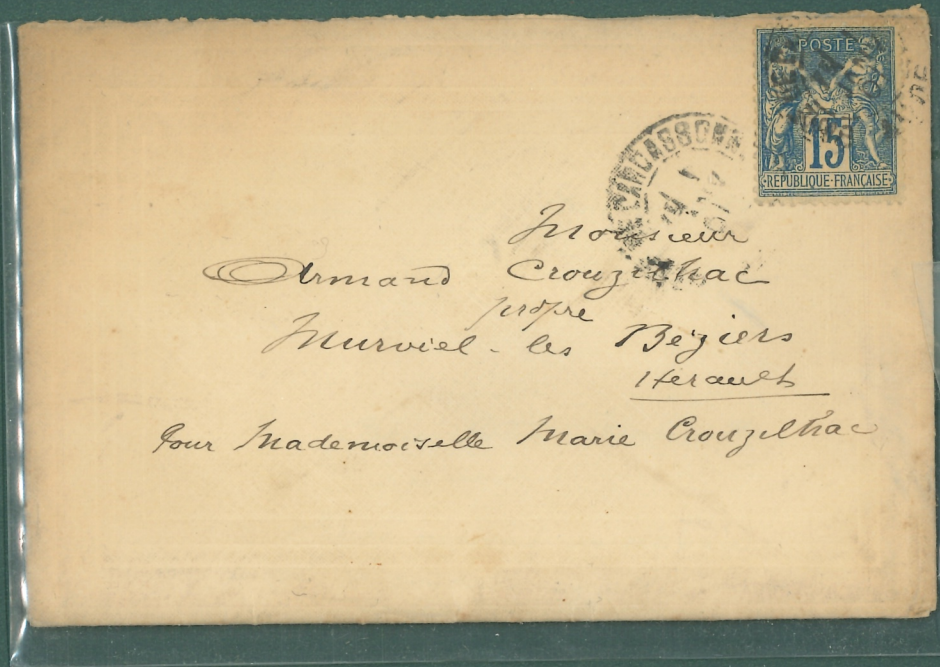 POSTE
15
RÉPUBLIQUE FRANÇAISE
CARCASSONNE
Monsieur
Armand Crouzilhac
propre
Murviel-les Béziers
Herault
Pour Mademoiselle Marie Crouzilhac